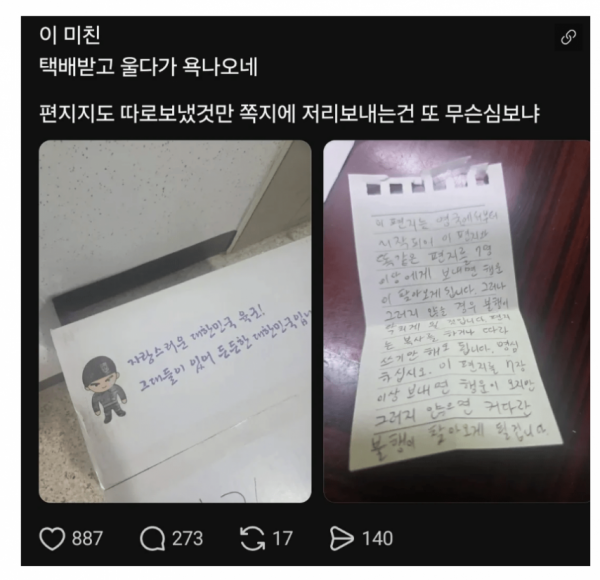 이 미친
택배받고 울다가 욕나오네
편지지도 따로보냈것만 쪽지에 저리보내는건 또 무슨심보냐
자랑스러운 대한민국 육군!
그대들이 있어 든든한 대한민국입니
이 편지는 영국에서부터
시작되어 이 편지와
똑같은 편지를 7명
이상에게 보내면 행운
이 찾아오게 됩니다. 그러나
그러지 않는 경우 불행이
복사를 하거나 따라
쓰기만 해도 됩니다. 명심
하십시오. 이 편지를 7장
이상 보내면 행운이 오지만
그러지 않으면 커다란
불행이 찾아오게 될겁니다
887
273
17
140